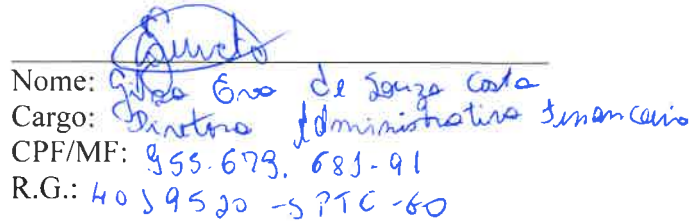 Nome: Gilza Eva de Souza Costa
Cargo: Diretora Administrativa Financeiro
CPF/MF: 955.679.681-91
R.G.: 4059520 - SPTC - GO